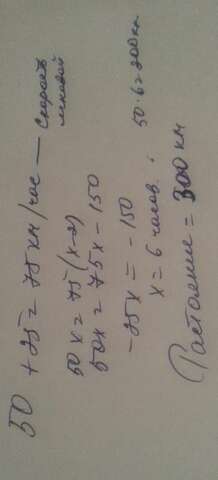 50 + 25 = 75 км/час — скорость легковой
50x = 75(x-2)
50x = 75x - 150
-25x = -150
x = 6 часов. 50·6=300км
Растояние = 300 км